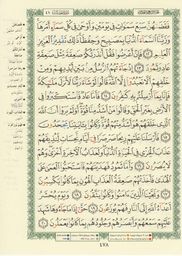 فَقَضَىٰهُنَّ سَبْعَ سَمَٰوَاتٍ فِى يَوْمَيْنِ وَأَوْحَىٰ فِى كُلِّ سَمَآءٍ أَمْرَهَا
وَزَيَّنَّا ٱلسَّمَآءَ ٱلدُّنْيَا بِمَصَٰبِيحَ وَحِفْظًا ذَٰلِكَ تَقْدِيرُ ٱلْعَزِيزِ
ٱلْعَلِيمِ ١٢ فَإِنْ أَعْرَضُوا۟ فَقُلْ أَنذَرْتُكُمْ صَٰعِقَةً مِّثْلَ صَٰعِقَةِ
عَادٍ وَثَمُودَ ١٣ إِذْ جَآءَتْهُمُ ٱلرُّسُلُ مِنۢ بَيْنِ أَيْدِيهِمْ وَمِنْ
خَلْفِهِمْ أَلَّا تَعْبُدُوٓا۟ إِلَّا ٱللَّهَ قَالُوا۟ لَوْ شَآءَ رَبُّنَا لَأَنزَلَ مَلَٰٓئِكَةً
فَإِنَّا بِمَآ أُرْسِلْتُم بِهِۦ كَٰفِرُونَ ١٤ فَأَمَّا عَادٌ فَٱسْتَكْبَرُوا۟ فِى
ٱلْأَرْضِ بِغَيْرِ ٱلْحَقِّ وَقَالُوا۟ مَنْ أَشَدُّ مِنَّا قُوَّةً أَوَلَمْ يَرَوْا۟ أَنَّ
ٱللَّهَ ٱلَّذِى خَلَقَهُمْ هُوَ أَشَدُّ مِنْهُمْ قُوَّةً وَكَانُوا۟ بِـَٔايَٰتِنَا يَجْحَدُونَ
١٥ فَأَرْسَلْنَا عَلَيْهِمْ رِيحًا صَرْصَرًا فِىٓ أَيَّامٍ نَّحِسَاتٍ لِّنُذِيقَهُمْ
عَذَابَ ٱلْخِزْىِ فِى ٱلْحَيَوٰةِ ٱلدُّنْيَا وَلَعَذَابُ ٱلْءَاخِرَةِ أَخْزَىٰ وَهُمْ
لَا يُنصَرُونَ ١٦ وَأَمَّا ثَمُودُ فَهَدَيْنَٰهُمْ فَٱسْتَحَبُّوا۟ ٱلْعَمَىٰ عَلَى
ٱلْهُدَىٰ فَأَخَذَتْهُمْ صَٰعِقَةُ ٱلْعَذَابِ ٱلْهُونِ بِمَا كَانُوا۟ يَكْسِبُونَ
١٧ وَنَجَّيْنَا ٱلَّذِينَ ءَامَنُوا۟ وَكَانُوا۟ يَتَّقُونَ ١٨ وَيَوْمَ يُحْشَرُ
أَعْدَآءُ ٱللَّهِ إِلَى ٱلنَّارِ فَهُمْ يُوزَعُونَ ١٩ حَتَّىٰٓ إِذَا مَا جَآءُوهَا شَهِدَ
عَلَيْهِمْ سَمْعُهُمْ وَأَبْصَٰرُهُمْ وَجُلُودُهُم بِمَا كَانُوا۟ يَعْمَلُونَ ٢٠
٤٧٨